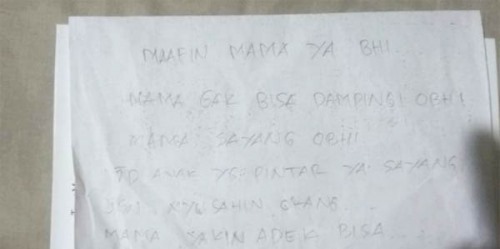 MAAFIN MAMA YA BHI.
MAMA GAK BISA DAMPINGI OBHI
MAMA SAYANG OBHI
JD ANAK YG PINTAR YA SAYANG
ORANG
MAMA YAKIN ADEK BISA